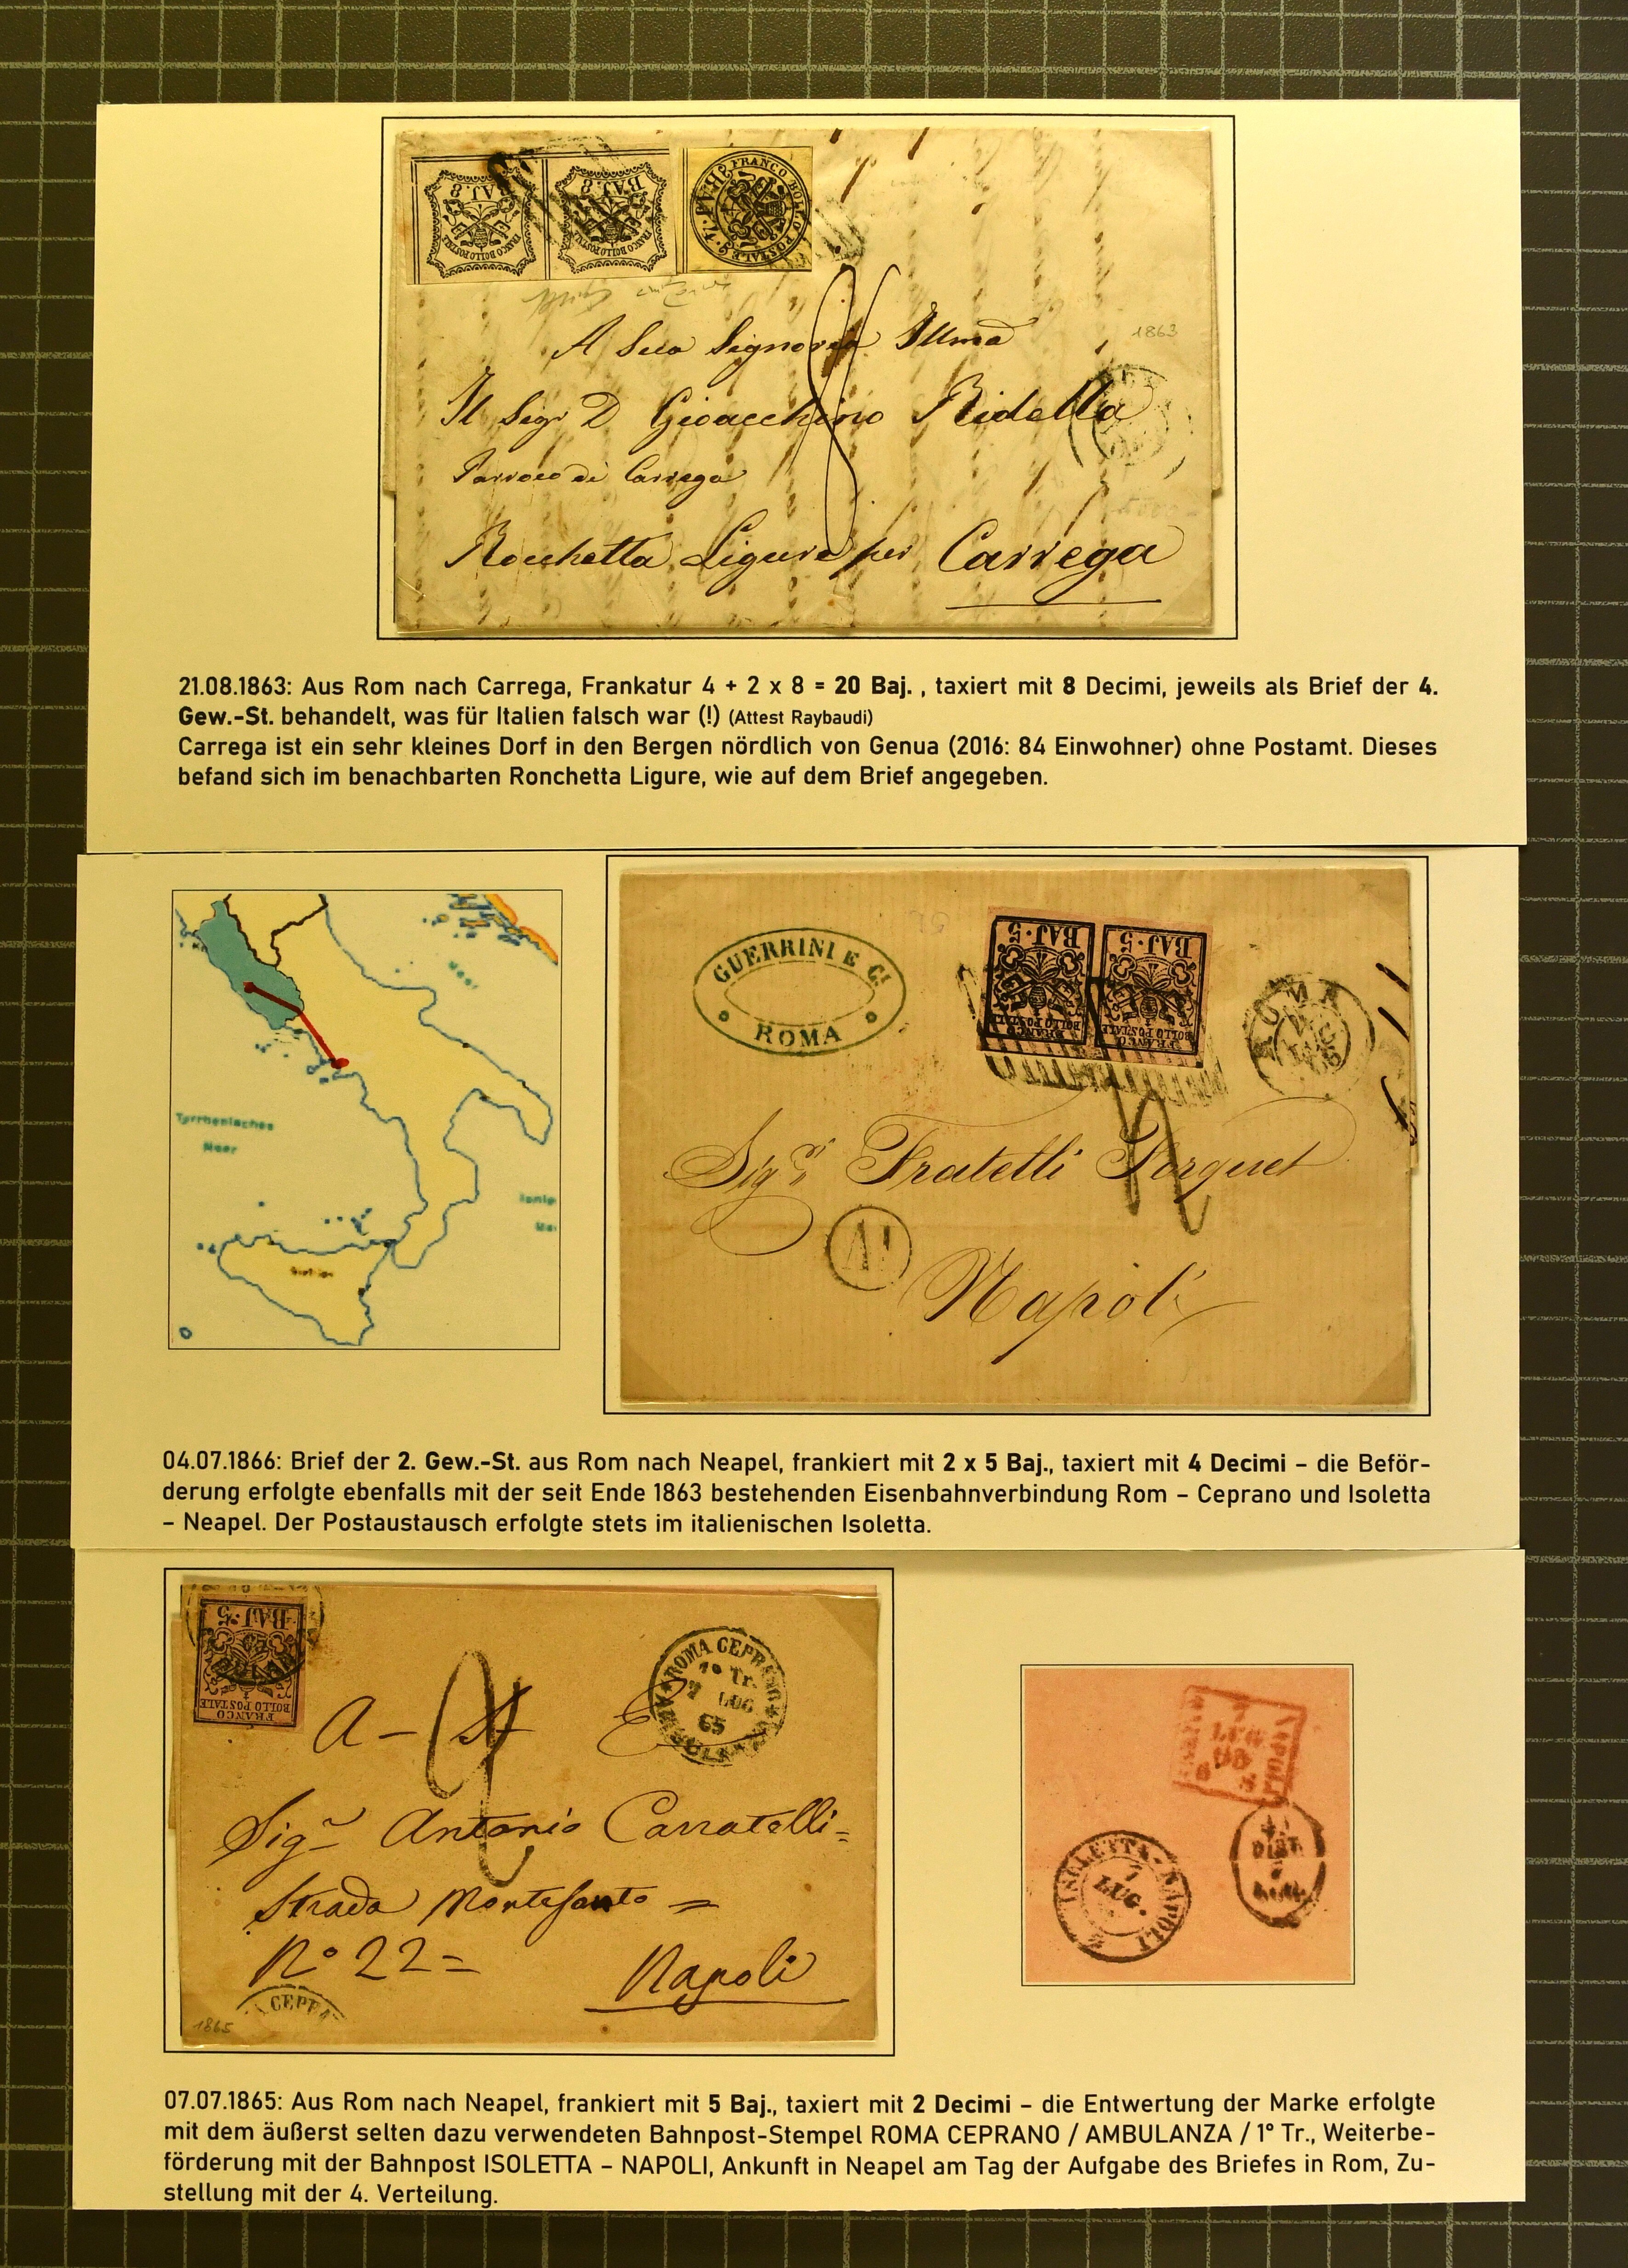 BAJ.8
BAJ.8
FRANCO BOLLO POSTALE
FRANCO BOLLO POSTALE
FRANCO BOLLO POSTALE
8
1863
A Sua Signoria Illma
Il Sigr D Gioacchino Ridella
Parroco di Carrega
Rocchetta Ligure per Carrega
21.08.1863: Aus Rom nach Carrega, Frankatur 4 + 2 x 8 = 20 Baj. , taxiert mit 8 Decimi, jeweils als Brief der 4.
Gew.-St. behandelt, was für Italien falsch war (!) (Attest Raybaudi)
Carrega ist ein sehr kleines Dorf in den Bergen nördlich von Genua (2016: 84 Einwohner) ohne Postamt. Dieses
befand sich im benachbarten Ronchetta Ligure, wie auf dem Brief angegeben.
Tyrrhenisches
Meer
Meer
GUERRINI E C.
ROMA
BAJ.5
BAJ.5
FRANCO
BOLLO POSTALE
FRANCO
BOLLO POSTALE
ROMA
4
Sigri Fratelli Forquet
A1
Napoli
04.07.1866: Brief der 2. Gew.-St. aus Rom nach Neapel, frankiert mit 2 x 5 Baj., taxiert mit 4 Decimi – die Beför-
derung erfolgte ebenfalls mit der seit Ende 1863 bestehenden Eisenbahnverbindung Rom – Ceprano und Isoletta
– Neapel. Der Postaustausch erfolgte stets im italienischen Isoletta.
BAJ.5
FRANCO
BOLLO POSTALE
2
ROMA CEPRANO
1º Tr.
7 LUG
65
Sigr Antonio Carratelli=
Strada Montesanto =
Nº 22=
Napoli
A CEPRA
1865
LUG
ISOLETTA-NAPOLI
7
LUG.
2
4
DIST.
7
07.07.1865: Aus Rom nach Neapel, frankiert mit 5 Baj., taxiert mit 2 Decimi – die Entwertung der Marke erfolgte
mit dem äußerst selten dazu verwendeten Bahnpost-Stempel ROMA CEPRANO / AMBULANZA / 1° Tr., Weiterbe-
förderung mit der Bahnpost ISOLETTA – NAPOLI, Ankunft in Neapel am Tag der Aufgabe des Briefes in Rom, Zu-
stellung mit der 4. Verteilung.